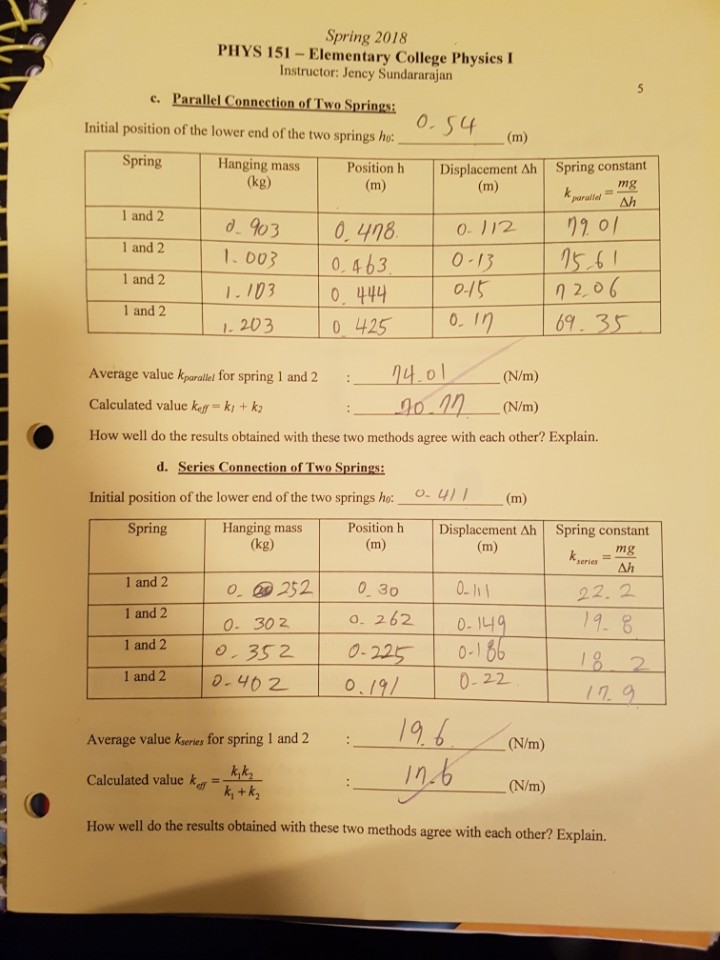 Spring 2018
PHYS 151 – Elementary College Physics I
Instructor: Jency Sundararajan
5
c. Parallel Connection of Two Springs:
Initial position of the lower end of the two springs h0: 0.54 (m)
Spring Hanging mass (kg) Position h (m) Displacement Δh (m) Spring constant k parallel = mg/Δh
1 and 2 0.903 0.478 0.112 79.01
1 and 2 1.003 0.463 0.13 75.61
1 and 2 1.103 0.444 0.15 72.06
1 and 2 1.203 0.425 0.17 69.35
Average value kparallel for spring 1 and 2 : 74.01 (N/m)
Calculated value keff = k1 + k2 : 70.77 (N/m)
How well do the results obtained with these two methods agree with each other? Explain.
d. Series Connection of Two Springs:
Initial position of the lower end of the two springs h0: 0.411 (m)
Spring Hanging mass (kg) Position h (m) Displacement Δh (m) Spring constant k series = mg/Δh
1 and 2 0.252 0.30 0.111 22.2
1 and 2 0.302 0.262 0.149 19.8
1 and 2 0.352 0.225 0.186 18.2
1 and 2 0.402 0.191 0.22 17.9
Average value kseries for spring 1 and 2 : 19.6 (N/m)
Calculated value keff = k1k2/k1 + k2 : 17.6 (N/m)
How well do the results obtained with these two methods agree with each other? Explain.